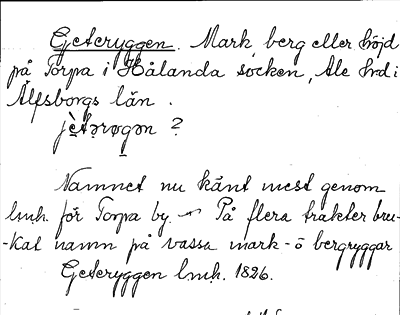 Geteryggen. Mark, berg eller höjd
på Torpa i Hålanda socken, Ale hrd i
Älfsborgs län.
jètərøgən ?
Namnet nu känt mest genom
lmh. för Torpa by. På flera trakter bru-
-kat namn på vassa mark- o bergryggar
Geteryggen lmh. 1826.